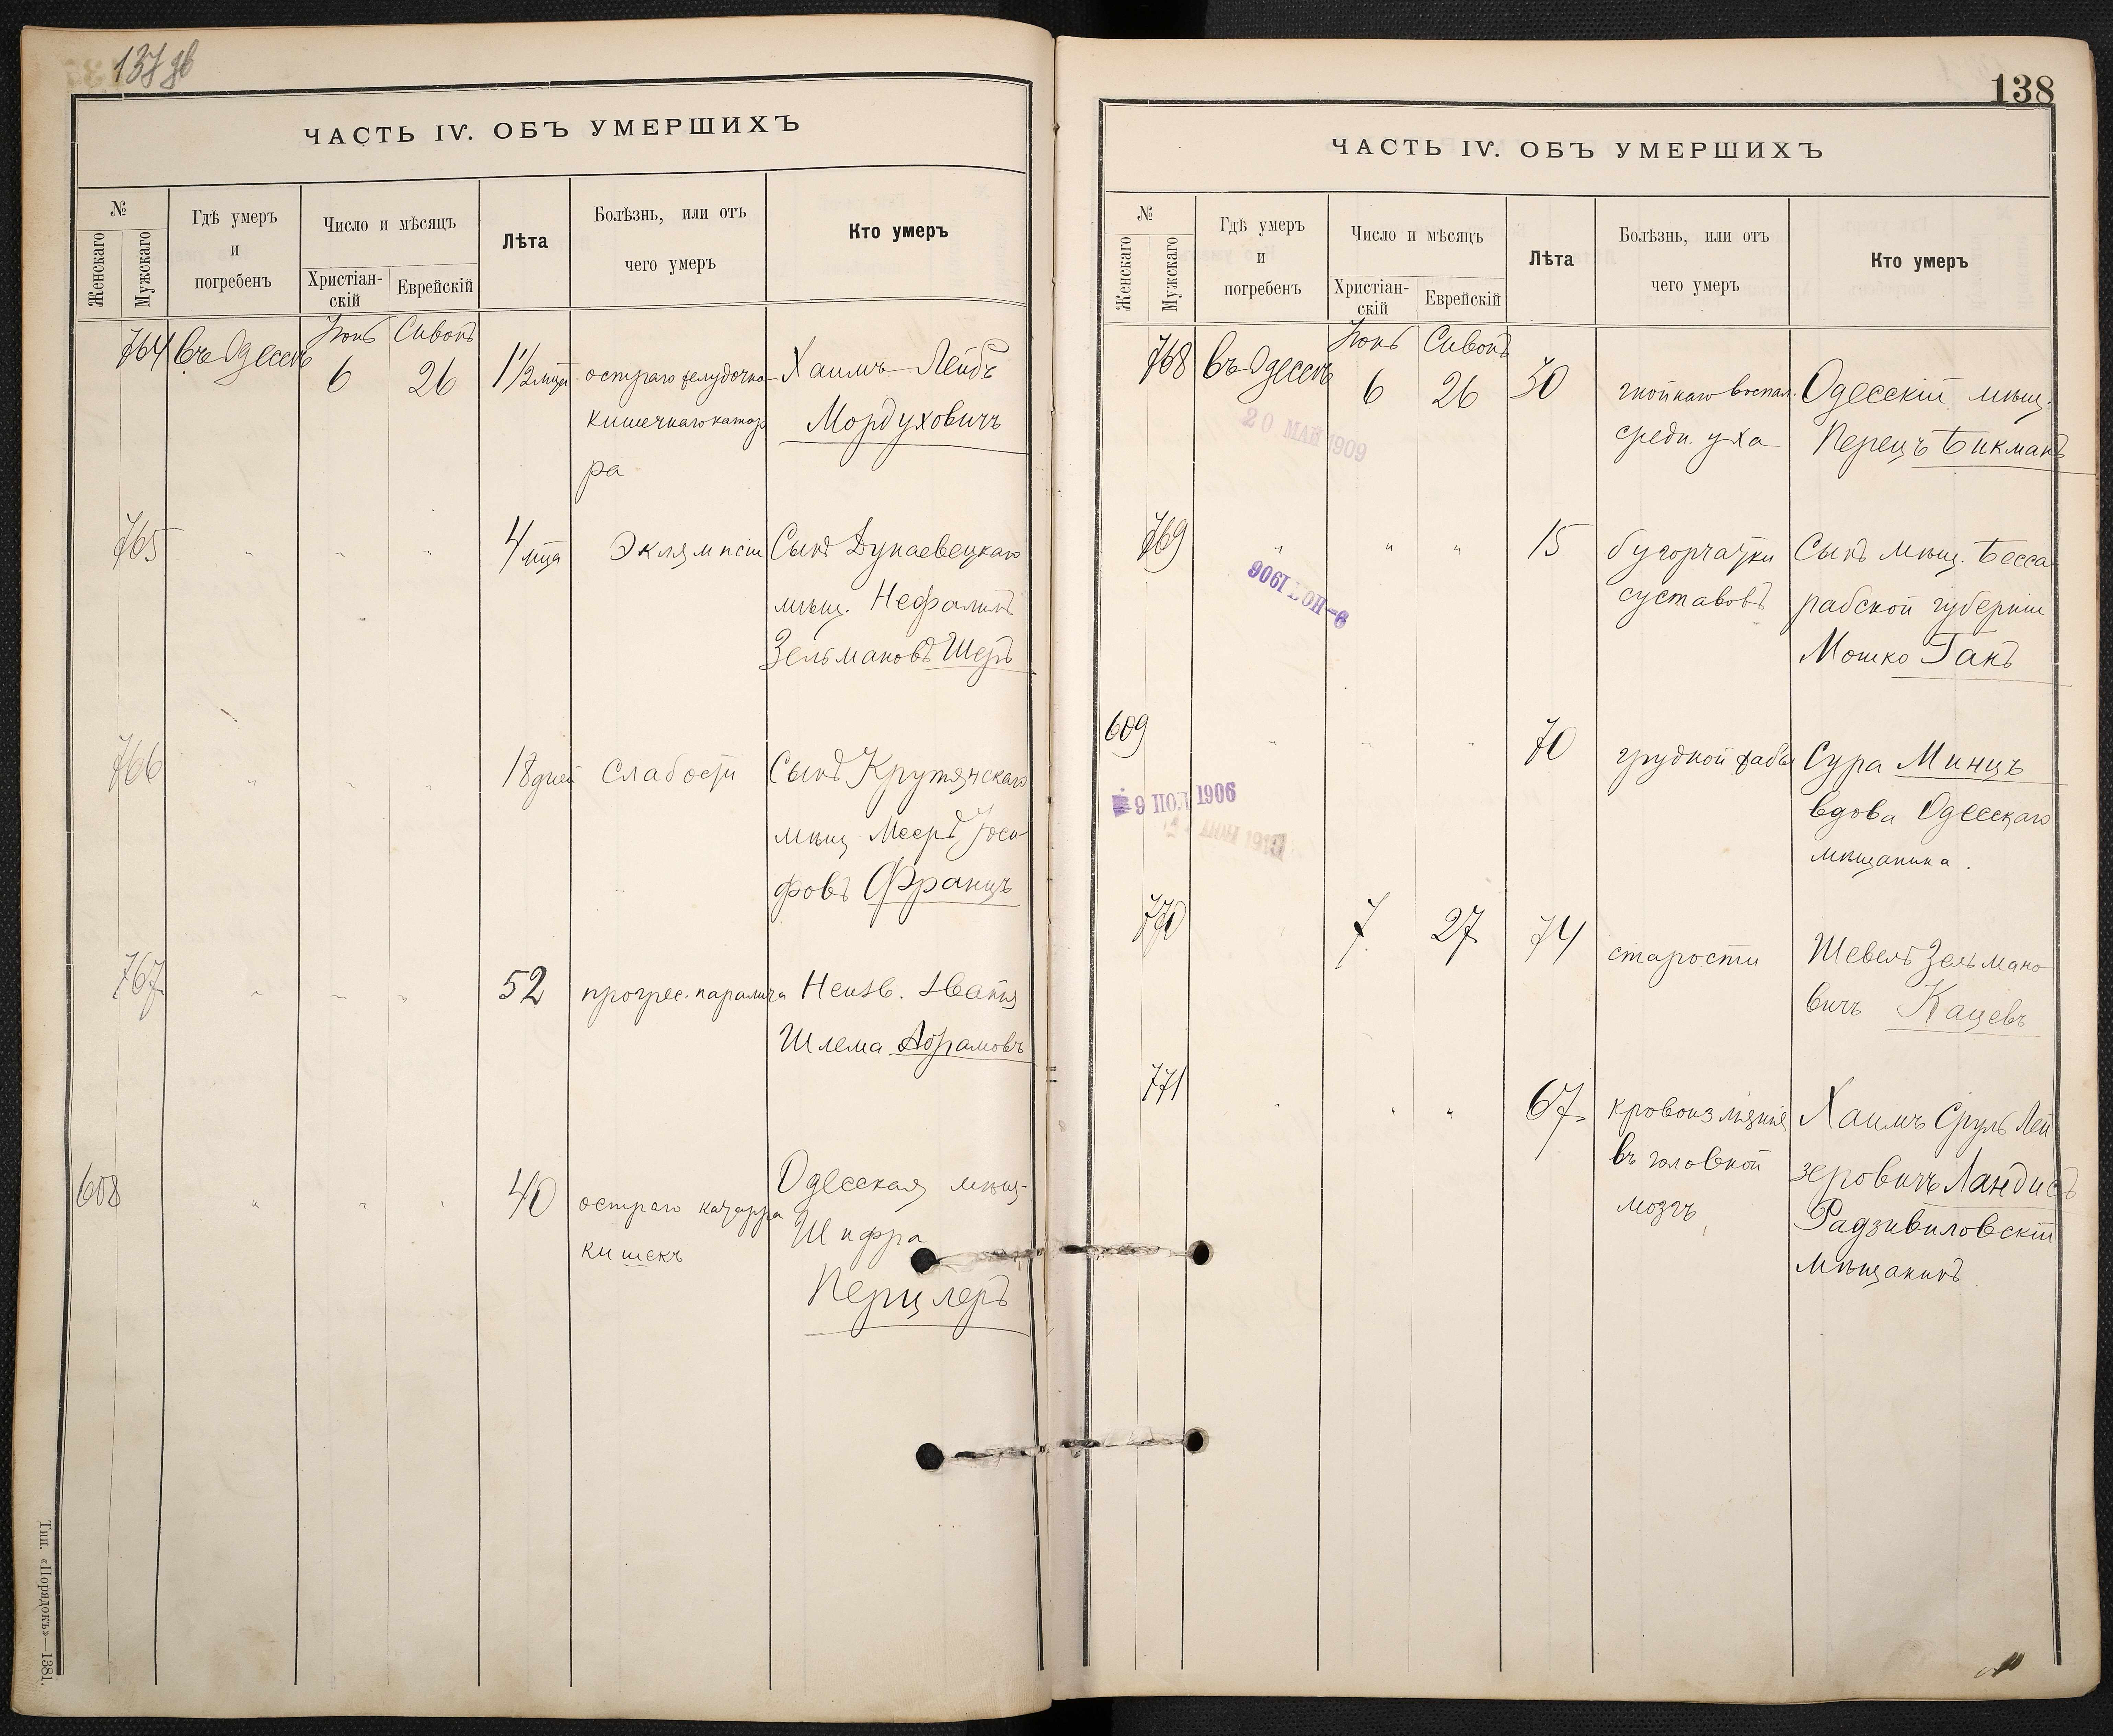 137 об
ЧАСТЬ IV. ОБЪ УМЕРШИХЪ
№
Женскаго
Мужскаго
Гдѣ умеръ
и
погребенъ
Число и мѣсяцъ
Христіан-
скій
Еврейскій
Лѣта
Болѣзнь, или отъ
чего умеръ
Кто умеръ
764 въ Одессѣ Іюнь 6 Сивонъ 26 1 1/2 мца остраго желудочно- Хаимъ Лейбъ
кишечнаго катар Мордуховичъ
ра
765 " " " 4 мца Эклямпсіи Сынъ Дунаевецкаго
мѣщ. Нефалимъ
Зельмановъ Шеръ
766 " " " 18 дней Слабости Сынъ Крутянскаго
мѣщ. Мееръ Іоси-
фовъ Францъ
767 " " " 52 прогрес. паралича Неизв. званія
Шлема Абрамовъ
608 " " " 40 остраго катарра Одесская мѣщ.
кишекъ Шифра
Перцлеръ
Тип. «Порядокъ»—1381.
138
ЧАСТЬ IV. ОБЪ УМЕРШИХЪ
№
Женскаго
Мужскаго
Гдѣ умеръ
и
погребенъ
Число и мѣсяцъ
Христіан-
скій
Еврейскій
Лѣта
Болѣзнь, или отъ
чего умеръ
Кто умеръ
768 въ Одессѣ Іюнь 6 Сивонъ 26 30 гнойнаго воспал. Одесскій мѣщ.
средн. уха Перецъ Бикманъ
20 МАЙ 1909
769 " " " 15 бугорчатки Сынъ мѣщ. Бесса
суставовъ рабской губерніи
Мошко Гакъ
609 " " " 70 грудной жабы Сура Минцъ
вдова Одесскаго
мѣщанина.
770 7 27 74 старости Шевель Зельмано
вичъ Кацевъ
771 " " " 67 кровоизліянія Хаимъ Сруль Лей
въ головной зеровичъ Ландисъ
мозгъ Радзивиловскій
мѣщанинъ.